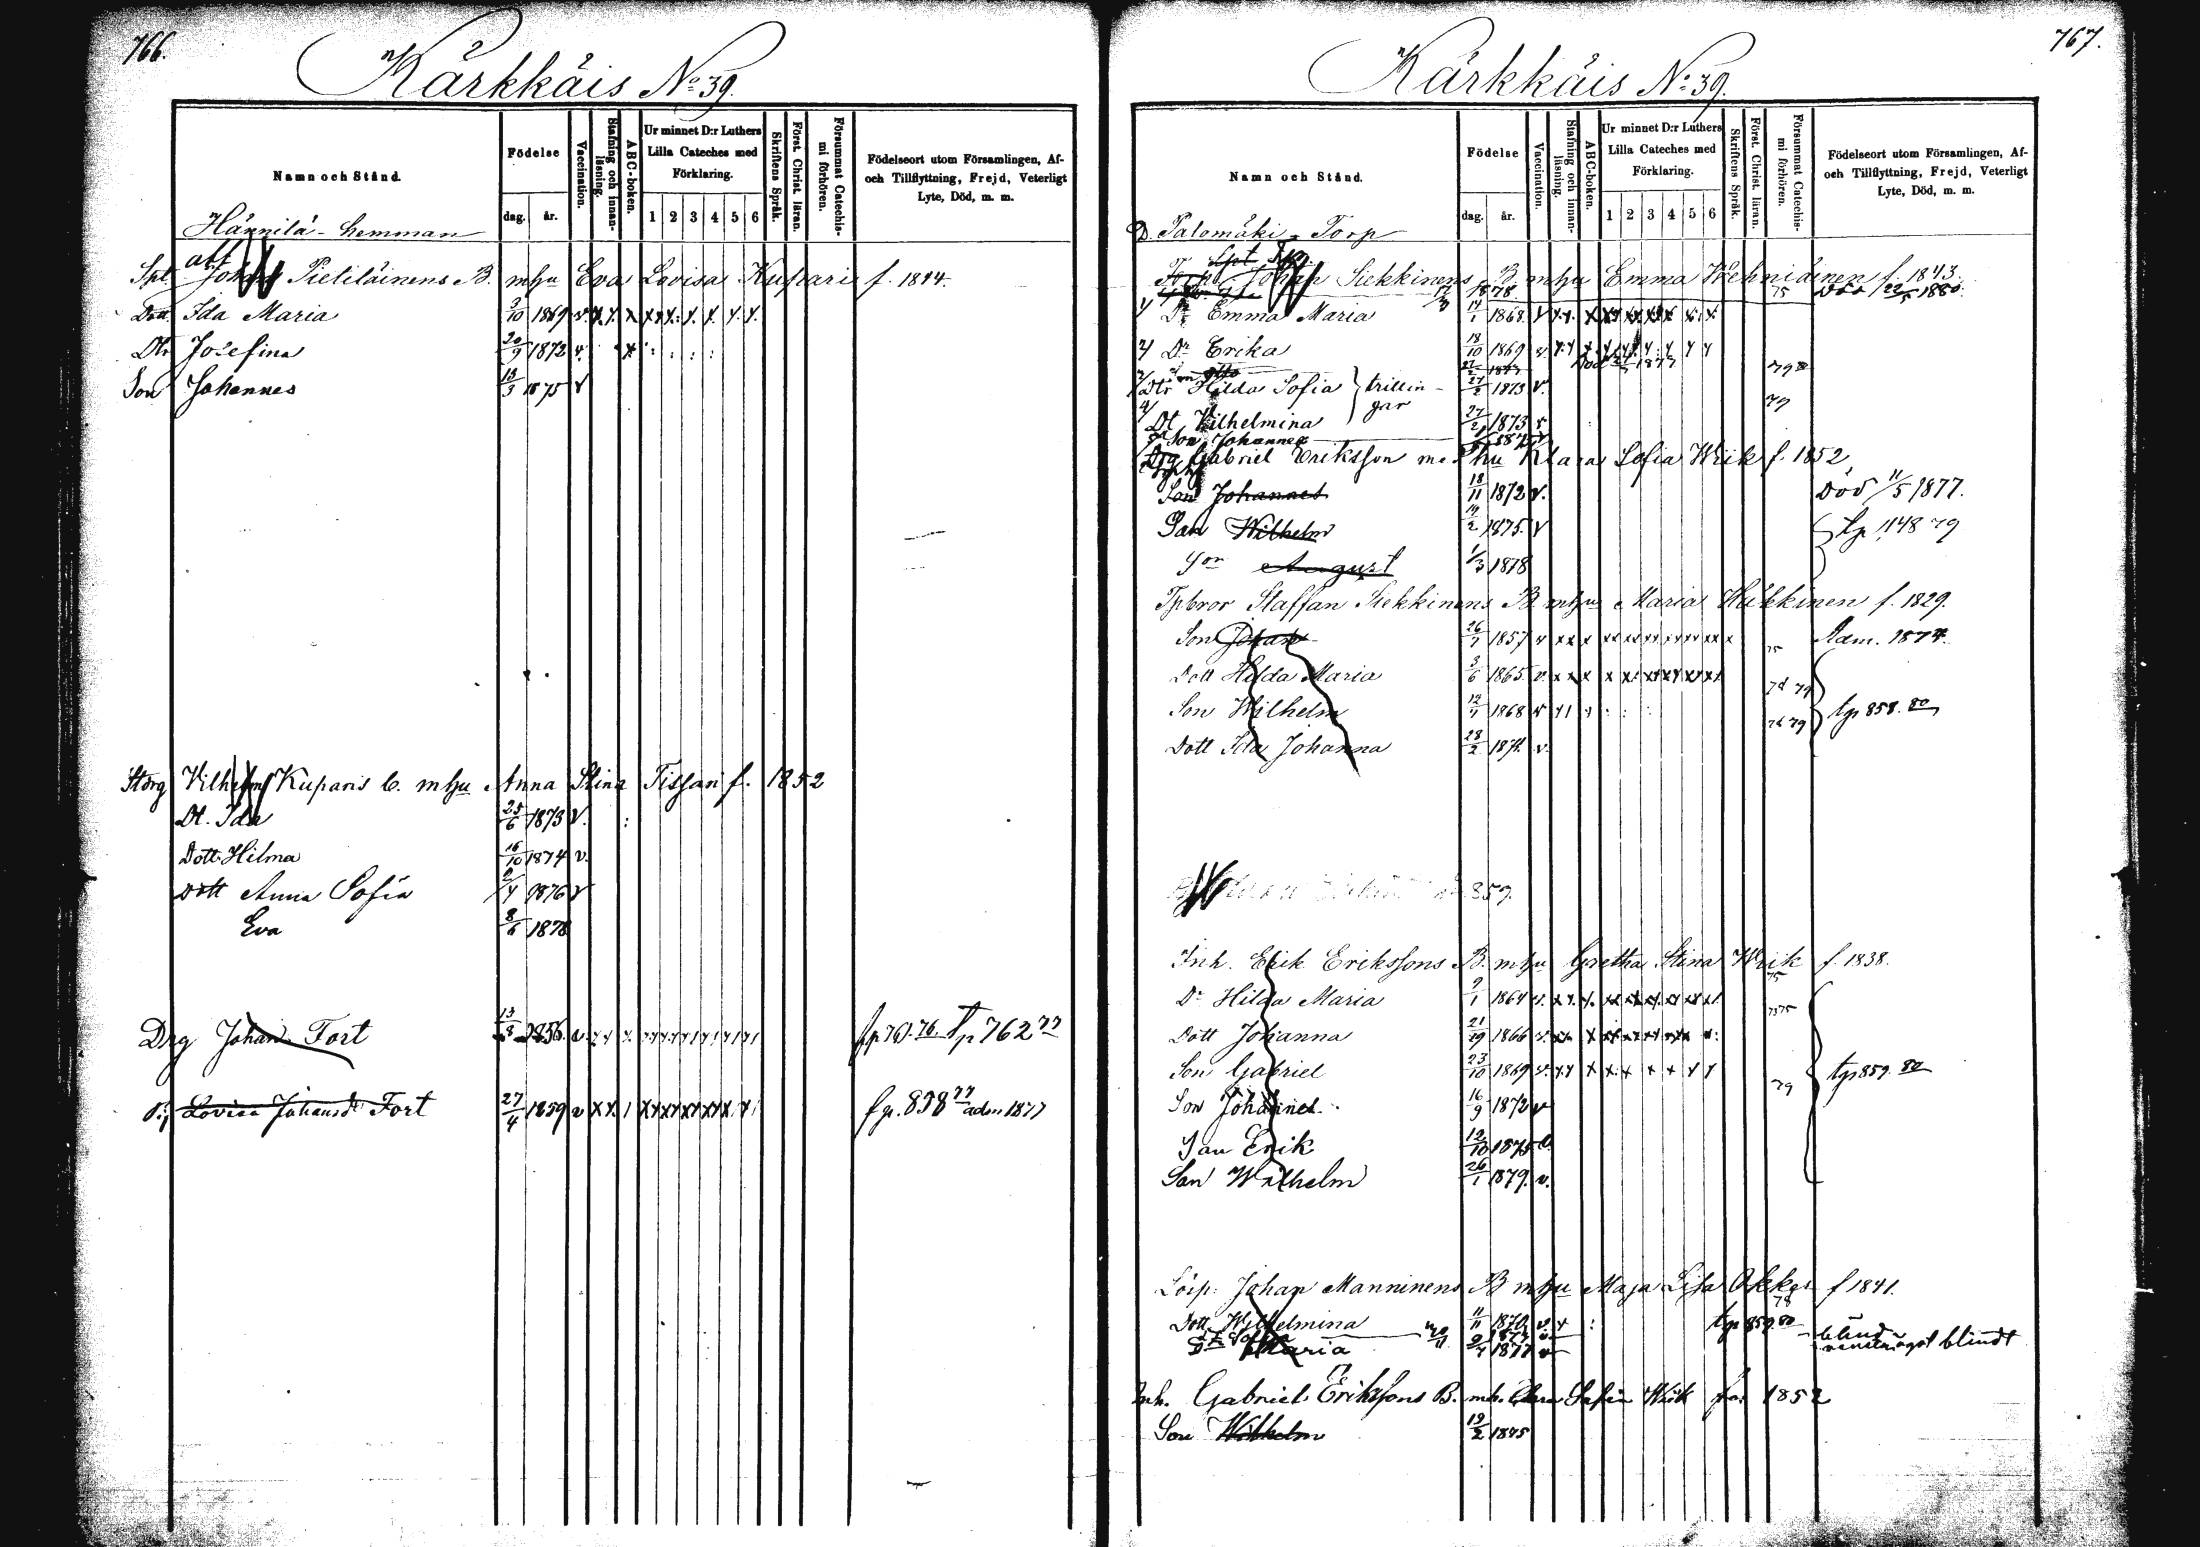 766.
Kärkkäis No 39.
Namn och Stånd.
Födelse
dag.
år.
Vaccination.
Stafning och innan-
läsning.
ABC-boken.
Ur minnet D:r Luthers
Lilla Cateches med
Förklaring.
1 2 3 4 5 6
Skriftens Språk.
Först. Christ. läran.
Försummat Catechis-
mi förhören.
Födelseort utom Församlingen, Af-
och Tillflyttning, Frejd, Veterligt
Lyte, Död, m. m.
Hännilä - hemman
Spt Johan Pietiläinens B. mhu Eva Lovisa Kuparii f. 1844.
Dott. Ida Maria 3/10 1869 v.
Dtr Josefina 20/9 1872 v.
Son Johannes 13/3 1875 v
Störg Vilhelm Kuparis b. mhu Anna Stina Tissari f. 1852
Dt. Ida 25/6 1873 v.
Dott. Hilma 16/10 1874 v.
Dott Anna Sofia 2/4 1876 v
Eva 8/6 1878
Drg Johan Fort 13/8 1856 Tp 762 77
Pig Lovisa Johansd. Fort 27/4 1859 v fp. 838 77 adm 1877
767.
Kärkkäis No 39.
Namn och Stånd.
Födelse
dag.
år.
Vaccination.
Stafning och innan-
läsning.
ABC-boken.
Ur minnet D:r Luthers
Lilla Cateches med
Förklaring.
1 2 3 4 5 6
Skriftens Språk.
Först. Christ. läran.
Försummat Catechis-
mi förhören.
Födelseort utom Församlingen, Af-
och Tillflyttning, Frejd, Veterligt
Lyte, Död, m. m.
D. Palomäki - Torp
Johan Siekkinens B mhu Emma f. 1843.
1878 75 Död 22/5 1880.
Dr Emma Maria 14/1 1868 v
Dr Erika 18/10 1869 v.
Dtr Hilda Sofia 27/2 1873 v. trillin-
gar 79
Dt Vilhelmina 27/2 1873 v
Son Johannes
Drg Gabriel Eriksson med hu Klara Sofia Wiik f. 1852
Son Johannes 18/11 1872 v. Död 11/5 1877.
Son Wilhelm 19/2 1875 v tp 1148 79
Son August 1/3 1878
Tpbror Staffan Siekkinens B mhu Maria Häkkinen f. 1829.
Son Johan 26/7 1857 v 75 Adm. 1874.
Dott Hilda Maria 3/6 1865 v.
Son Wilhelm 12/4 1868 v tp 858. 80
Dott Ida Johanna 28/2 1871 v.
859.
Inh. Erik Erikssons B. mhu Gretha Stina Wiik f. 1838.
Dr Hilda Maria 9/1 1864 v.
Dott Johanna 1866 v.
Son Gabriel 23/10 1869 v. 79 tp 859. 80
Son Johannes 16/9 1872 v
Son Erik 12/10 1875
Son Wilhelm 26/1 1879. v.
Lösp: Johan Manninens B mhu Maja Lisa Okker f 1841.
Dott Wilhelmina 11/11 1870 v. tp 859. 80
Maria 1877 v blindt
Inh. Gabriel Erikssons B. mh. Clara Sofia Wiik för 1852
Son Wilhelm 19/2 1875